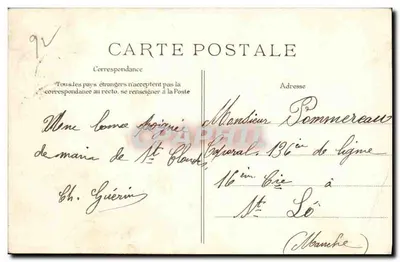 92
CARTE POSTALE
Correspondance
Tous les pays étrangers n'acceptent pas la
correspondance au recto, se renseigner à la Poste
Une bonne poignée
de main de St Claude
Ch. Guérin
Adresse
Monsieur Pommereau
Caporal, 136em de ligne
16em Cie à
St Lô
(Manche)